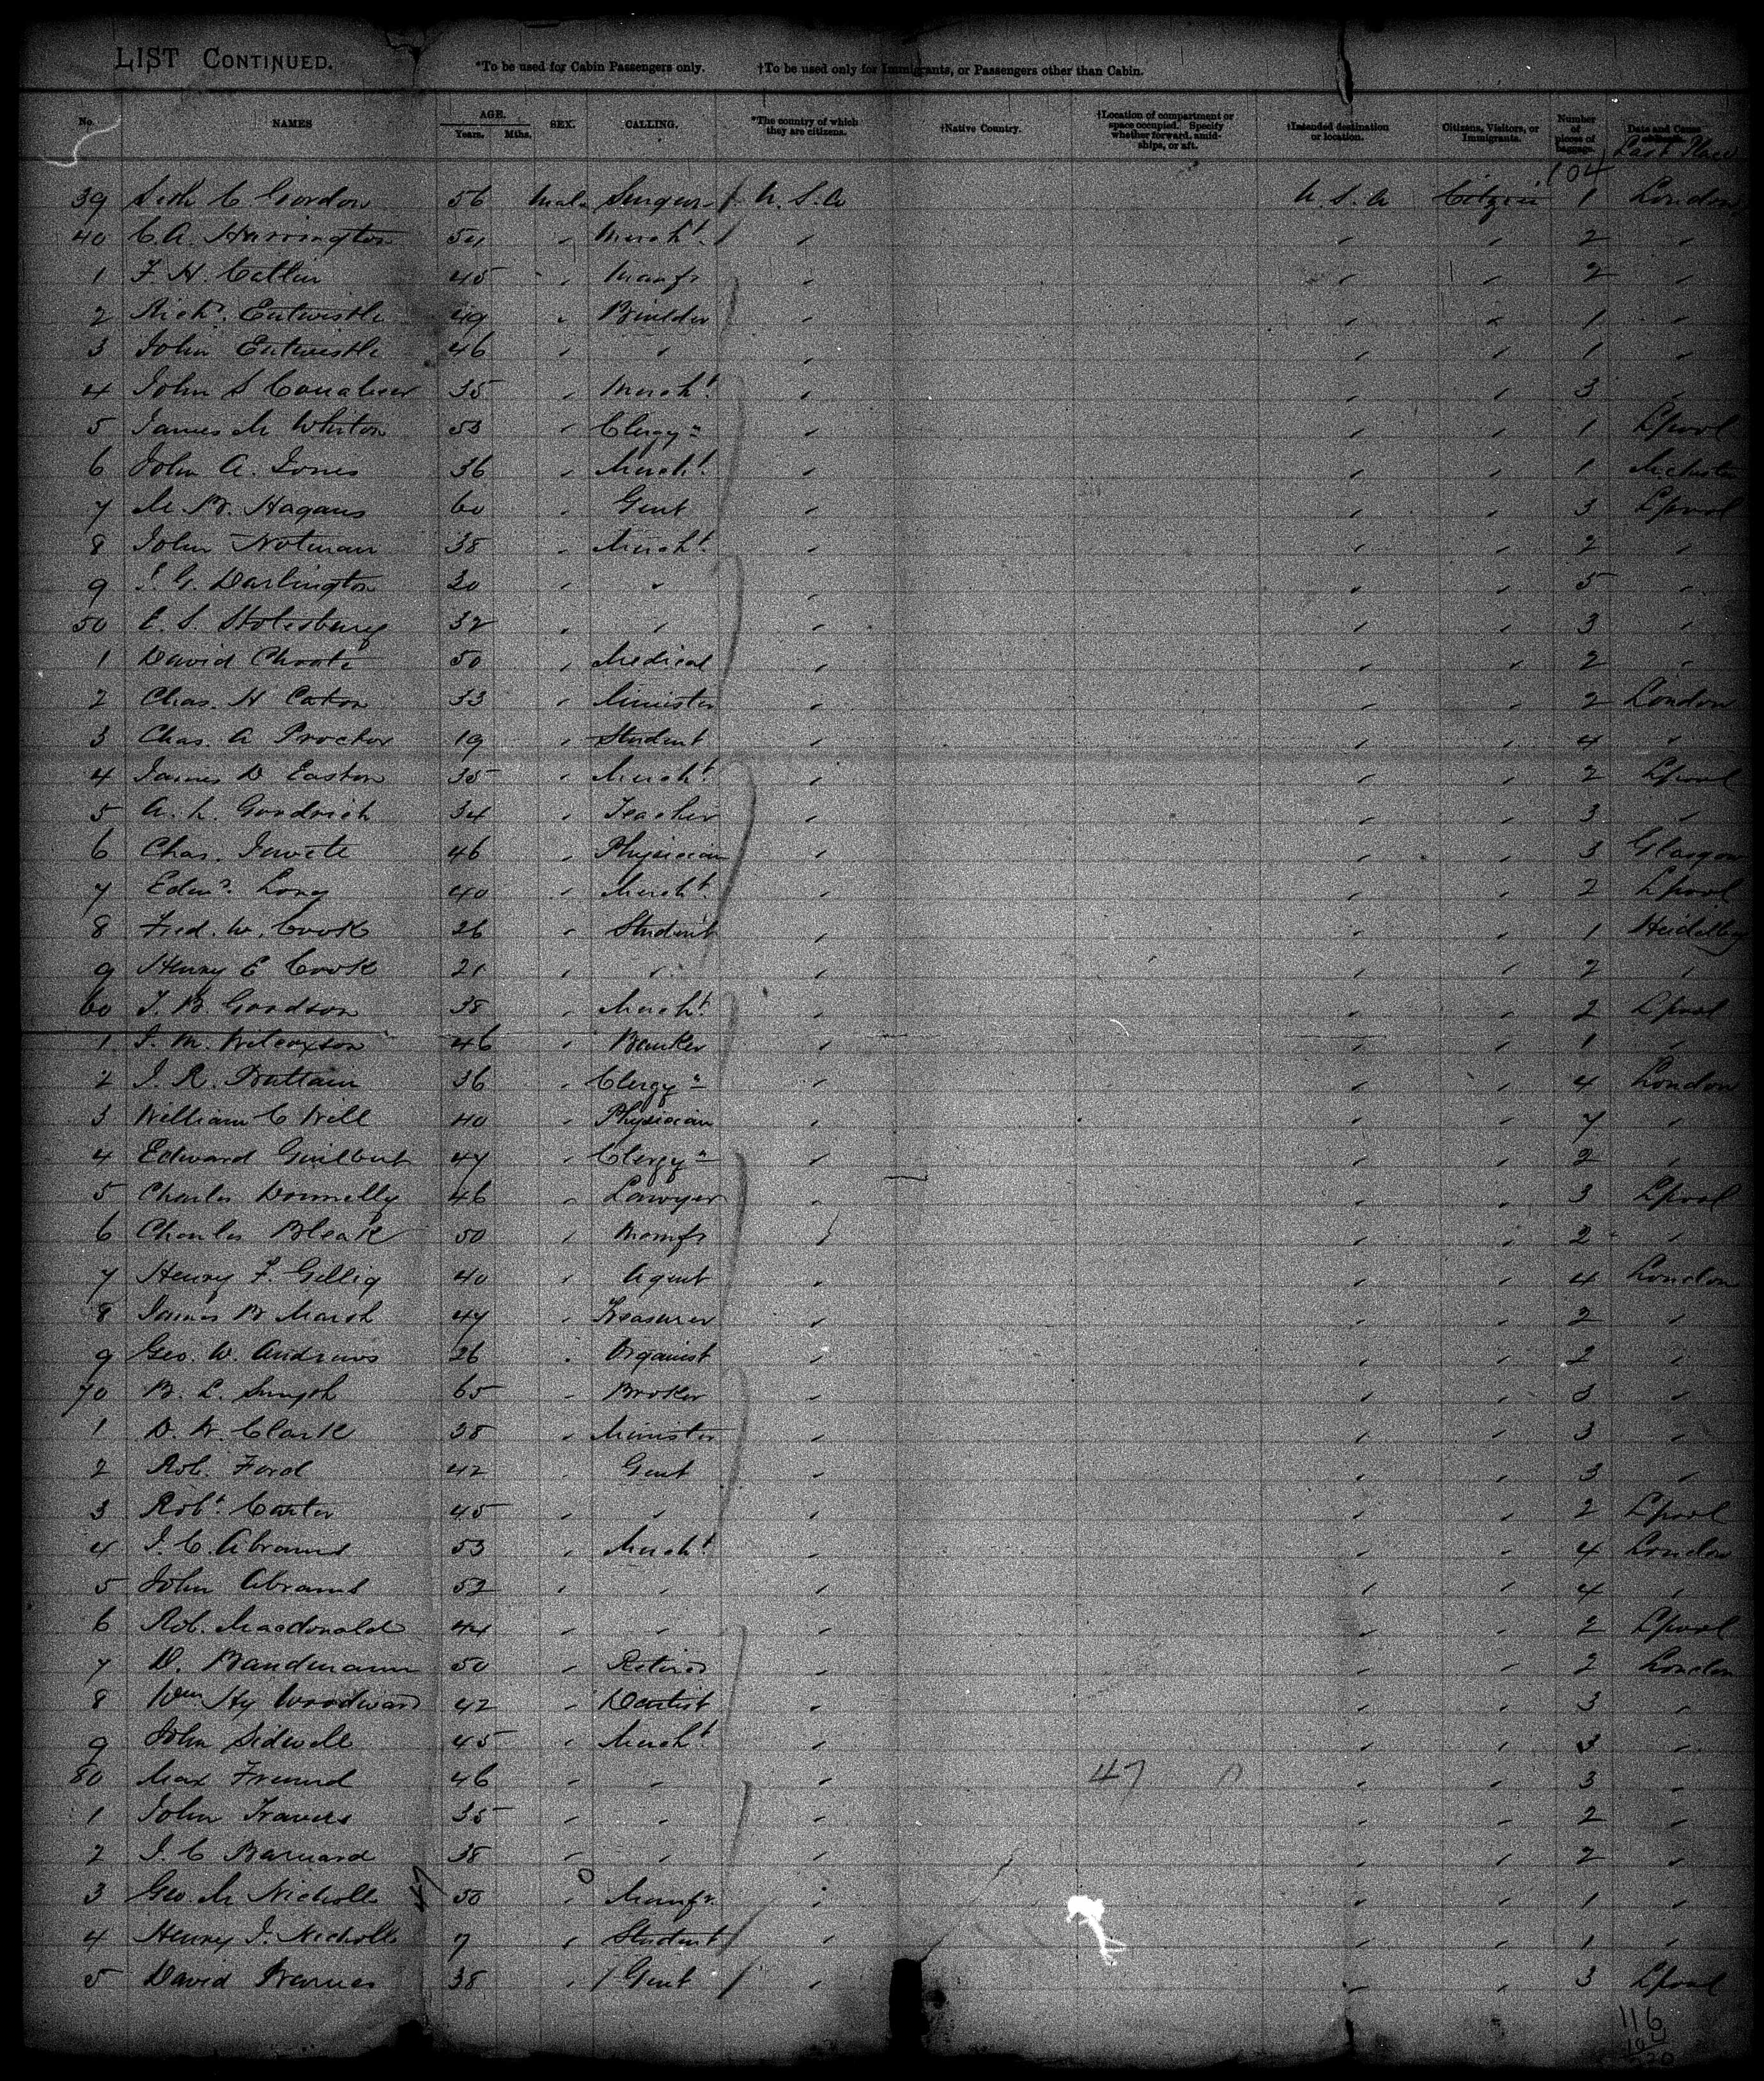 LIST CONTINUED.
*To be used for Cabin Passengers only. †To be used only for Immigrants, or Passengers other than Cabin.
No. NAMES AGE. Years. Mths. SEX. CALLING. *The country of which they are citizens. †Native Country. †Location of compartment or space occupied. Specify whether forward, amidships, or aft. †Intended destination or location. Citizens, Visitors, or Immigrants. Number of pieces of baggage. Date and Cause
Last Place
104
39 Seth C Gordon 56 Male Surgeon U.S.A U.S.A Citizen 1 London
40 C.A. Harrington 54 " Mercht. " " " 2 "
1 F. H. Catlin 45 " Manfr " " " 2 "
2 Richd. Entwistle 49 " Builder " " " 1 "
3 John Entwistle 46 " " " " " 1 "
4 John S 35 " Mercht. " " " 3 "
5 James M Whiton 53 " Clergyn " " " 1 Lpool
6 John A. Jones 36 " Mercht. " " " 1 Mchester
7 M. B. Hagans 60 " Gent " " " 3 Lpool
8 John Notman 38 " Mercht. " " " 2 "
9 J. G. Darlington 30 " " " " " 5 "
50 E. S. Stotesbury 32 " " " " " 3 "
1 David Choate 50 " Medical " " " 2 "
2 Chas. H Eaton 33 " Minister " " " 2 London
3 Chas. A Proctor 19 " Student " " " 4 "
4 James D Easton 35 " Mercht. " " " 2 Lpool
5 A. L. Goodrich 34 " Teacher " " " 3 "
6 Chas. Jewett 46 " Physician " " " 3 Glasgow
7 Edmd. Long 40 " Mercht. " " " 2 Lpool
8 Fred. W. Cook 26 " Student " " " 1 Heidelberg
9 Henry E Cook 21 " " " " " 2 "
60 J. B. Goodson 38 " Mercht. " " " 2 Lpool
1 J. M. Wilcoxson 46 " Banker " " " 1 "
2 J. R. Brittain 36 " Clergyn " " " 4 London
3 William C Will 40 " Physician " " " 7 "
4 Edward Guilbert 47 " Clergyn " " " 2 "
5 Charles Donnelly 46 " Lawyer " " " 3 Lpool
6 Charles Bleak 50 " Manfr " " " 2 "
7 Henry F. Gillig 40 " Agent " " " 4 London
8 James B Marsh 47 " Treasurer " " " 2 "
9 Geo. W. Andrews 26 " Organist " " " 2 "
70 B. L. Smyth 65 " Broker " " " 3 "
1 D. W. Clark 38 " Minister " " " 3 "
2 Rob. Ford 42 " Gent " " " 3 "
3 Robt. Carter 45 " " " " " 2 Lpool
4 J. C. Abrams 53 " Mercht. " " " 4 London
5 John Abrams 52 " " " " " 4 "
6 Rob. Macdonald 44 " " " " " 2 Lpool
7 D. Bandmann 50 " Retired " " " 2 London
8 Wm Hy Woodward 42 " Dentist " " " 3 "
9 John Sidwell 45 " Mercht. " " " 3 "
80 Max Freund 46 " " " 47 " " 3 "
1 John Travers 35 " " " " " 2 "
2 J. C Barnard 38 " " " " " 2 "
3 Geo. M Nicholls 50 " Manfr. " " " 1 "
4 Henry J. Nicholls 7 " Student " " " 1 "
5 David Barnes 38 " Gent " " " 3 Lpool
116